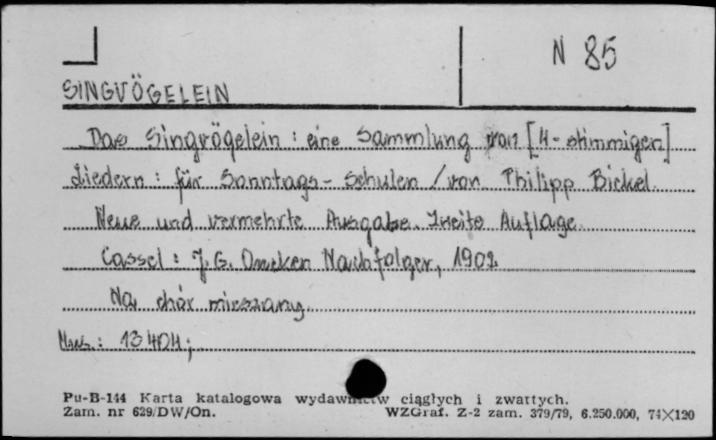 N 85
SINGVÖGELEIN
Das Singvögelein : eine Sammlung von [4-stimmigen]
Liedern : für Sonntags-Schulen / von Philipp Bickel.
Neue und vermehrte Ausgabe. Zweite Auflage
Cassel : J. G. Oncken Nachfolger, 1902.
Na chór mieszany.
Mus.: 13404;
Pu-B-144 Karta katalogowa wydawnictw ciągłych i zwartych.
Zam. nr 629/DW/On. WZGraf. Z-2 zam. 379/79, 6.250.000, 74×120